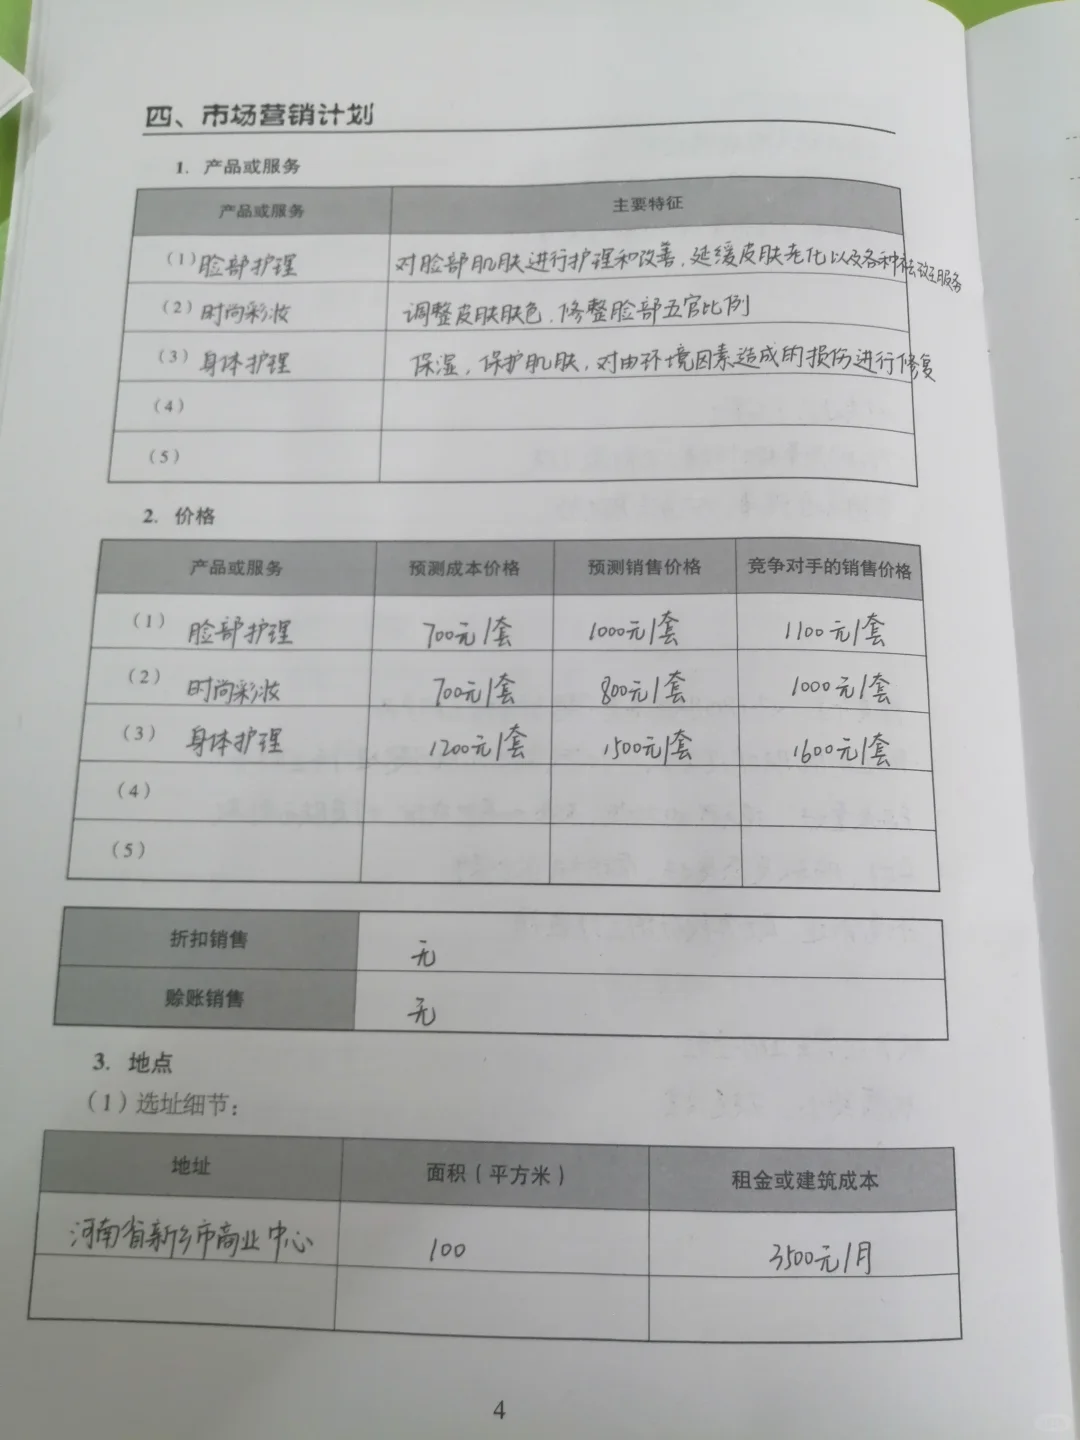 四、市场营销计划
1. 产品或服务
产品或服务 主要特征
(1) 脸部护理 对脸部肌肤进行护理和改善，延缓皮肤老化以及各种祛痘服务
(2) 时尚彩妆 调整皮肤肤色、修整脸部五官比例
(3) 身体护理 保湿，保护肌肤，对由环境因素造成的损伤进行修复
(4)
(5)
2. 价格
产品或服务 预测成本价格 预测销售价格 竞争对手的销售价格
(1) 脸部护理 700元/套 1000元/套 1100元/套
(2) 时尚彩妆 700元/套 800元/套 1000元/套
(3) 身体护理 1200元/套 1500元/套 1600元/套
(4)
(5)
折扣销售 无
赊账销售 无
3. 地点
(1) 选址细节：
地址 面积（平方米） 租金或建筑成本
河南省新乡市商业中心 100 3500元/月
4